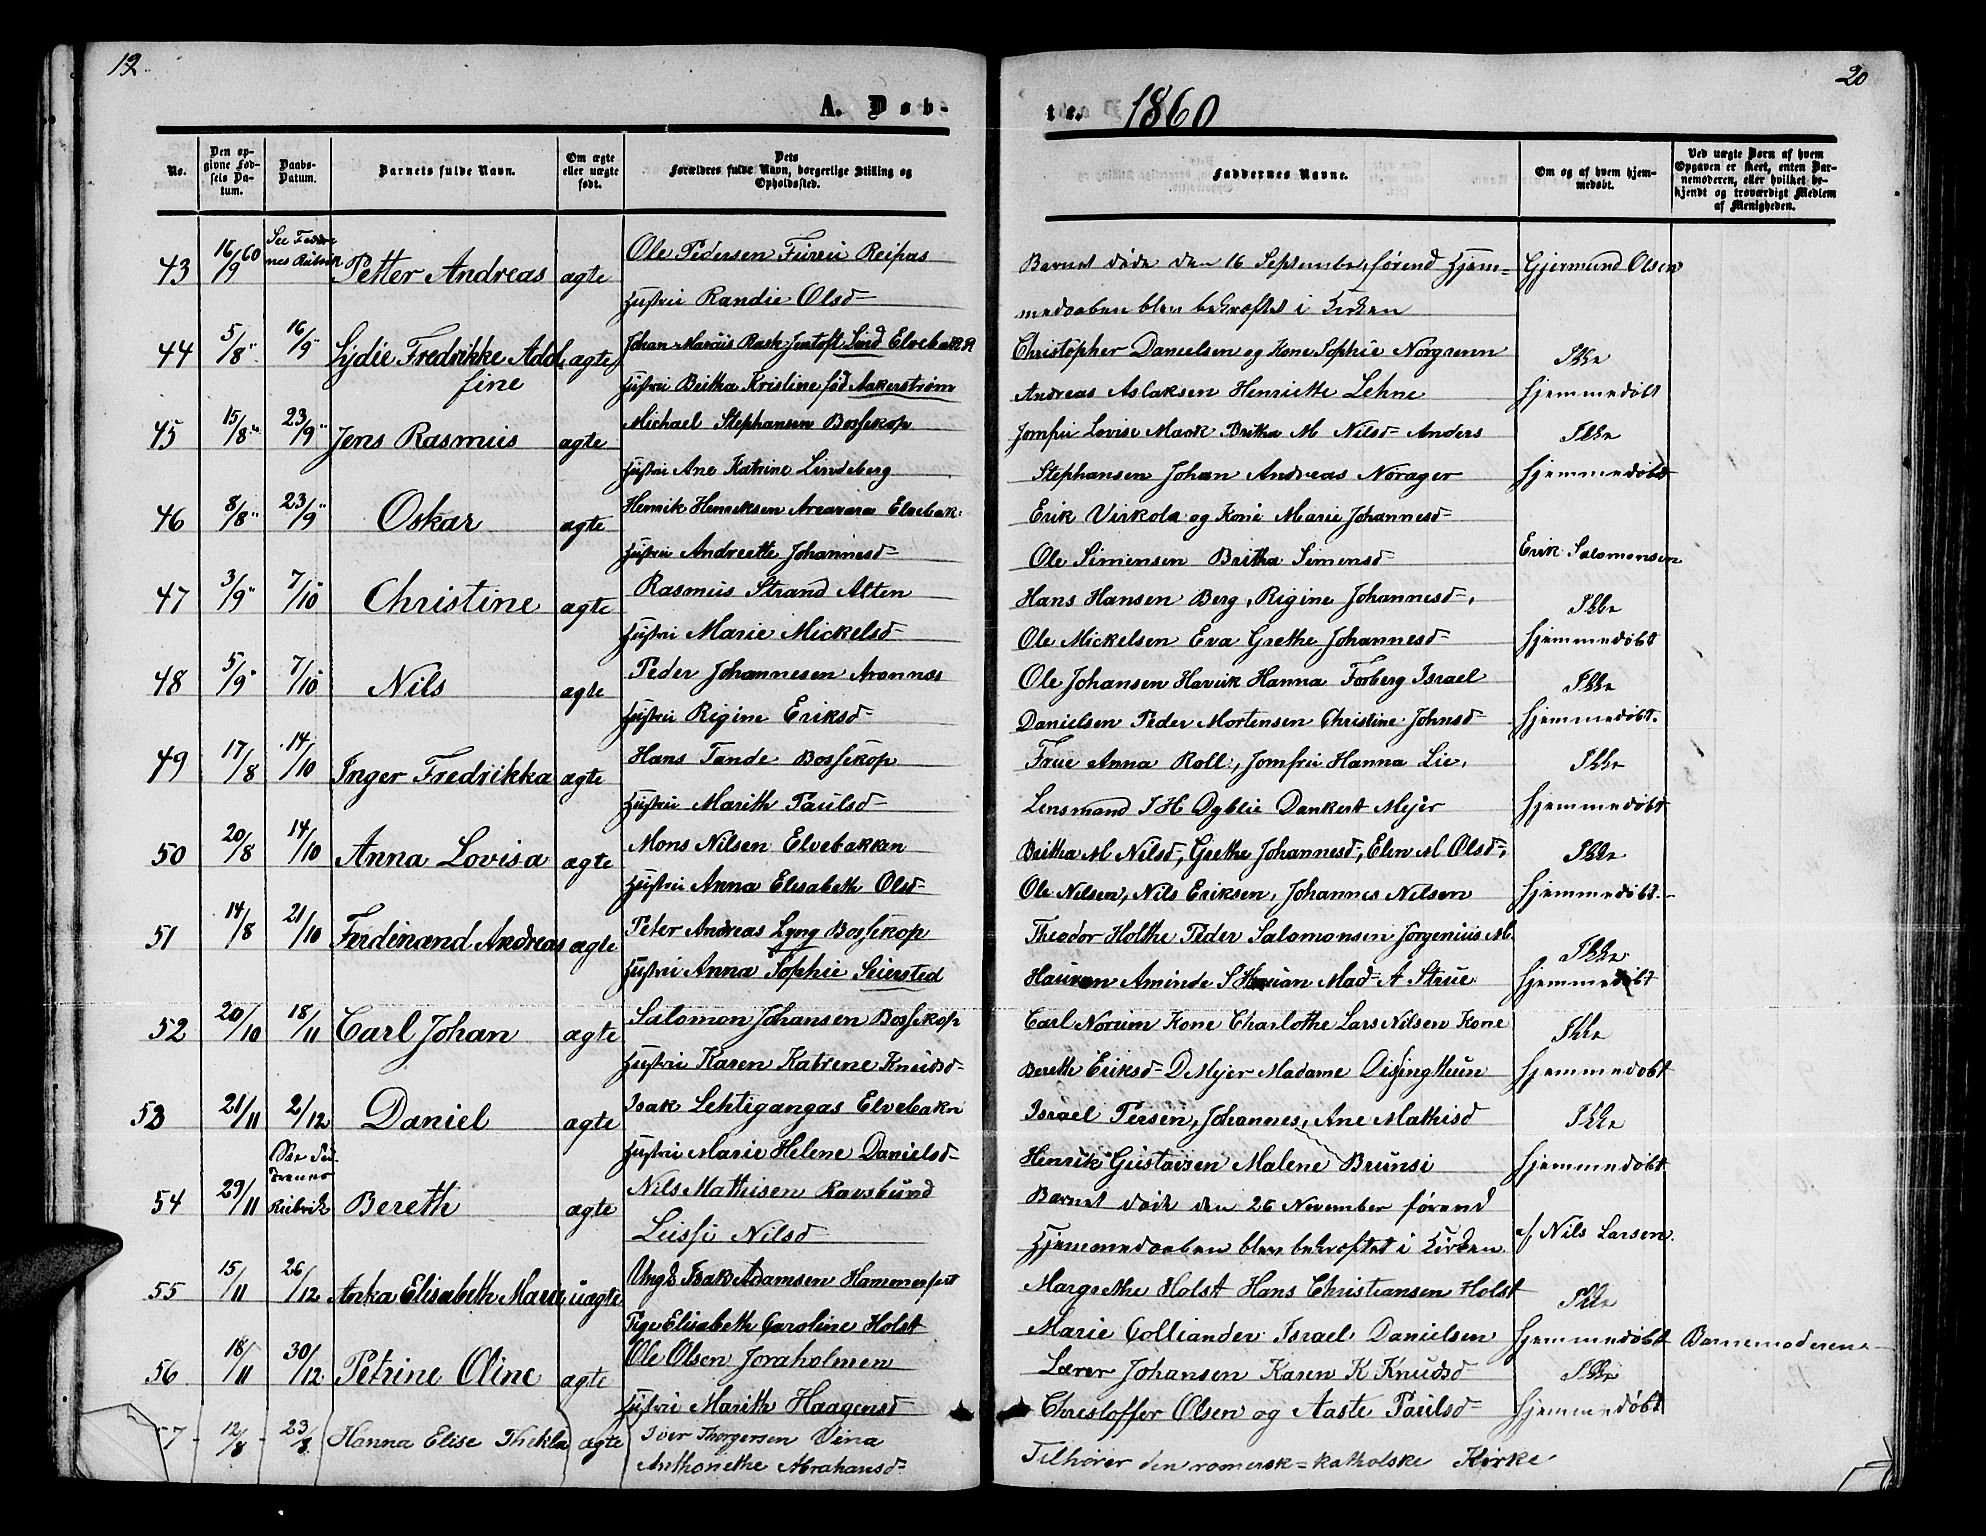 19.
20
A. Døb-
te. 1860
No.
Den opgivne Fødsels Datum.
Daabs-Datum.
Barnets fulde Navn.
Om ægte eller uægte født.
Dets Forældres fulde Navn, borgerlige Stilling og Opholdssted.
Faddernes Navne.
Om og af hvem hjemmedøbt.
Ved uægte Børn af hvem Opgaven er skeet, enten Barnemoderen, eller hvilket bekjendt og troværdigt Medlem af Menigheden.
43 16/9 60 See Faddernes Rubrik Petter Andreas ægte Ole Pedersen Furu Reipas
Hustru Randie Olsd=
Barnet døde den 16 September, førend Hjem=
medaaben blev bekræftet i Kirken
Gjermund Olsen
44 5/8" 16/9" Lydie Fredrikke Adolfine ægte Johan Marcus Rask Jentoft Lund Elvebakk
Hustru Britha Kristine fød Aakerstrøm
Christopher Danielsen og Kone Sophie Norgrenn
Andreas Aslaksen Henriette Lehne
Ikke hjemmedøbt
45 15/8" 23/9" Jens Rasmus ægte Michael Stephansen Bossekop
Hustru Ane Katrine Lindeberg
Jomfru Lovise Maak Britha M Nilsd= Anders
Stephansen Johan Andreas Norager
Ikke hjemmedøbt
46 8/8" 23/9" Oskar ægte Henrik Henriksen Areavara Elvebak.
Hustru Andreette Johannesd=
Erik Virkola og Kone Marie Johannesd=
Ole Simensen Britha Simensd
Erik Salomonsen
47 3/9" 7/10" Christine ægte Rasmus Strand Alten
Hustru Marie Mickelsd=
Hans Hansen Berg, Rigine Johannesd=,
Ole Mickelsen Eva Grethe Johannesd=
Ikke hjemmedøbt
48 5/9" 7/10" Nils ægte Peder Johannesen Aronnæs
Hustru Rigine Eriksd=
Ole Johansen Harvik Hanna Forberg Israel
Danielsen Peder Mortensen Christine Johnsd=
Ikke hjemmedøbt.
49 17/8 14/10 Inger Fredrikka ægte Hans Tande Bossekop
Hustru Marith Paulsd=
Frue Anna Roll, Jomfru Hanna Lie,
Lensmand I H Dyblie Dankert Mejer
Ikke hjemmedøbt
50 20/8 14/10 Anna Lovisa ægte Mons Nilsen Elvebakken
Hustru Anna Elisabeth Olsd=
Britha M Nilsd=, Grethe Johannesd=, Elen M Olsd=,
Ole Nilsen, Nils Eriksen, Johannes Nilsen
Ikke hjemmedøbt.
51 14/8 21/10 Ferdinand Andreas ægte Peter Andreas Lyng Bossekop
Hustru Anna Sophie Seiersted
Theodor Holthe Peder Salomonsen Jørgenius M.
Hauan Aminde S Hauan Mad= A Strue
Ikke hjemmedøbt
52 20/10 18/11 Carl Johan ægte Salomon Johansen Bossekop
Hustru Karen Katrene Knudsd=
Carl Norum Kone Charlothe Lars Nilsen Kone
Berethe Eriksd= D Mejer Madame
Ikke hjemmedøbt
53 21/11 2/12 Daniel ægte Isak Lehtigangas Elvebakn
Hustru Marie Helene Danielsd=
Israel Persen, Johannes, Ane Mathisd
Henrik Gustavsen Malene Brunsi
Ikke hjemmedøbt
54 23/11 See Faddernes Rubrik Bereth ægte Nils Mathisen Ravsbund
Lussi Nilsd
Barnet døde den 26 November førend
Hjemmedaaben blev bekræftet i Kirken
af Nils Larsen.
55 15/11 26/12 Anka Elisabeth Marie uægte Ungk Isak Adamsen Hammerfest
Pige Elisabeth Caroline Holst
Margrethe Holst Hans Christiansen Holst
Marie Colliander Israel Danielsen
Ikke hjemmedøbt Barnemoderen
56 18/11 30/12 Petrine Oline ægte Ole Olsen Joraholmen
Hustru Marith Haagensd
Lærer Johansen Karen K Knudsd=
Christoffer Olsen og Aaste Paulsd=
Ikke hjemmedøbt
57 12/8 23/8 Hanna Elise Thekla ægte Iver Thorgersen Vina
Anthonethe Abrahamsd=
Tilhører den romersk=katholske Kirke